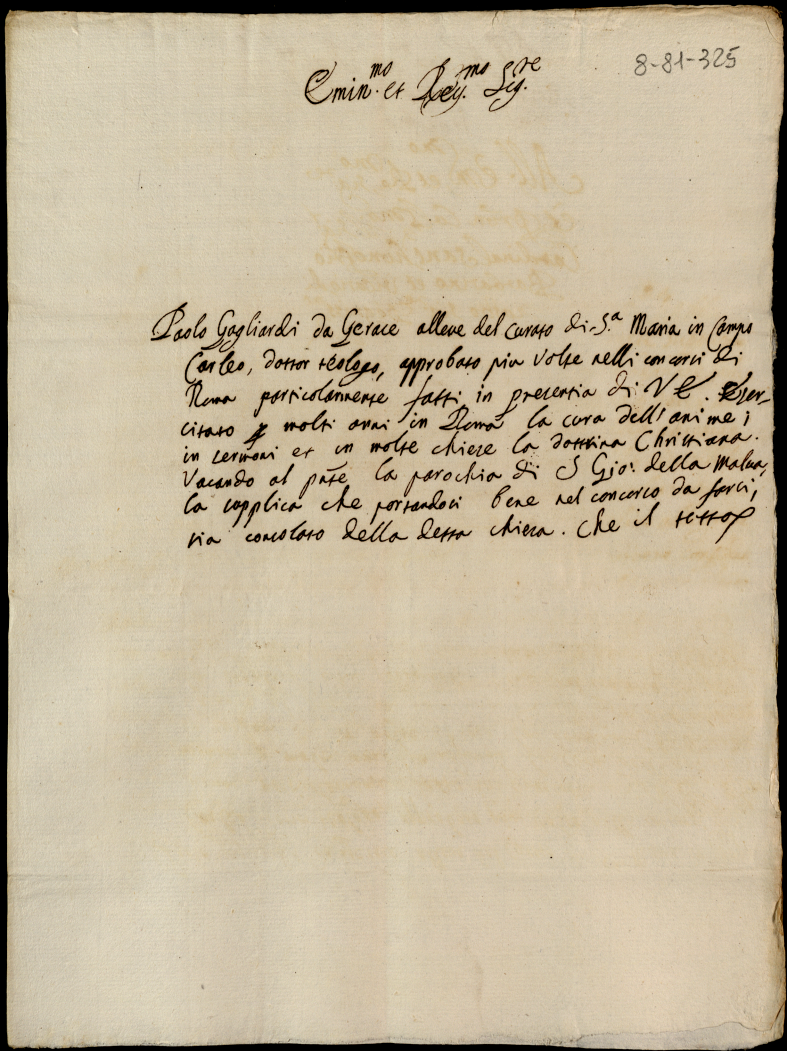 8-81-325
Emin.mo et Rev.mo Sig.re
Paolo Gagliardi da Gerace alleve del curato di S.a Maria in Campo
Carleo, dottor teologo, approbato piu volte nelli concorsi di
Roma particolarmente fatti in presentia di V E. Eser-
citato p molti anni in Roma la cura dell'anime;
in sermoni et in molte chiese la dottrina Christiana.
Vacando al pnte la parochia di S Gio: della Malua,
la supplica che portandosi bene nel concorso da farsi,
sia consolato della detta chiesa. Che il tutto